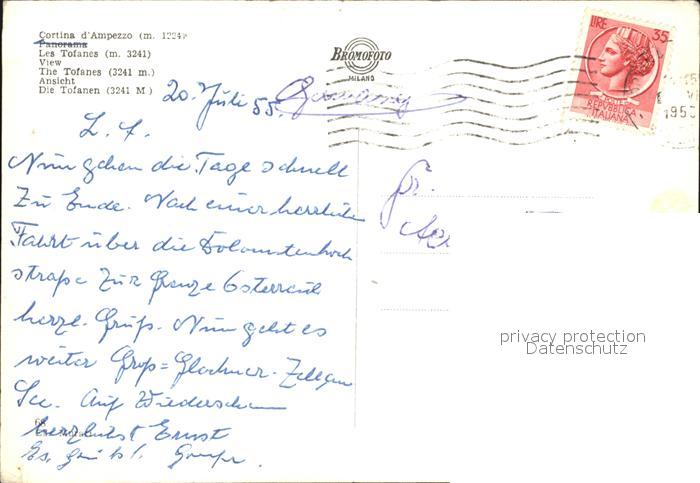 Cortina d'Ampezzo (m. 1224)
Panorama
Les Tofanes (m. 3241)
View
The Tofanes (3241 m.)
Ansicht
Die Tofanen (3241 M)
BROMOFOTO
MILANO
LIRE 35
REPVBBLICA
ITALIANA
195
20. Juli 55.
L. f.
Nun gehen die Tage schnell
zu Ende. Nach einer herrlichen
Fahrt über die Dolomitenhoch
straße zur Grenze Österreich
herzl. Grüß. Nun geht es
weiter Groß=Glockner-Zell am
See. Auf Wiedersehen
herzlichst Ernst
Es grüßt
Fr.
privacy protection
Datenschutz